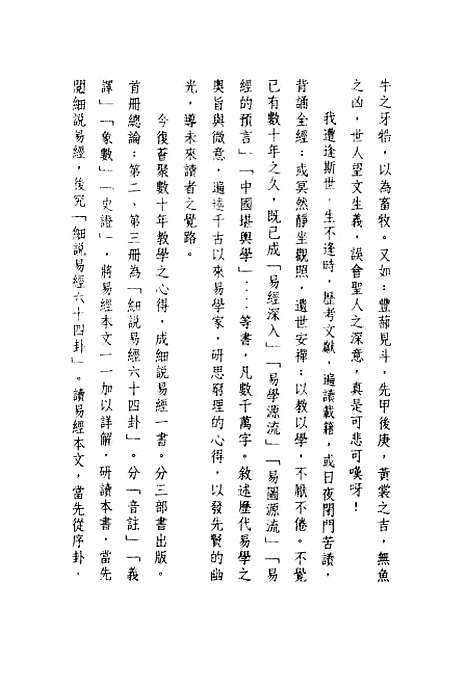 牛之牙牿，以為畜牧。又如：豐蔀見斗，先甲後庚，黃裳之吉，無魚
之凶，世人望文生義，誤會聖人之深意，真是可悲可嘆呀！
我遭逢斯世，生不逢時，歷考文獻，遍讀載籍，或日夜閉門苦讀，
背誦全經；或冥然靜坐觀照，遺世安禪；以教以學，不厭不倦。不覺
已有數十年之久，既已成「易經深入」「易學源流」「易圖源流」「易
經的預言」「中國堪輿學」……等書，凡數千萬字。敘述歷代易學之
奧旨與微意，遍遠千古以來易學家，研思窮理的心得，以發先賢的幽
光，導未來讀者之覺路。
今復薈聚數十年教學之心得，成細說易經一書。分三部書出版。
首冊總論；第二、第三冊為「細說易經六十四卦」。分「音註」「義
譯」「象數」「史證」，將易經本文一一加以詳解，研讀本書，當先
閱細說易經，後究「細說易經六十四卦」。讀易經本文，當先從序卦、